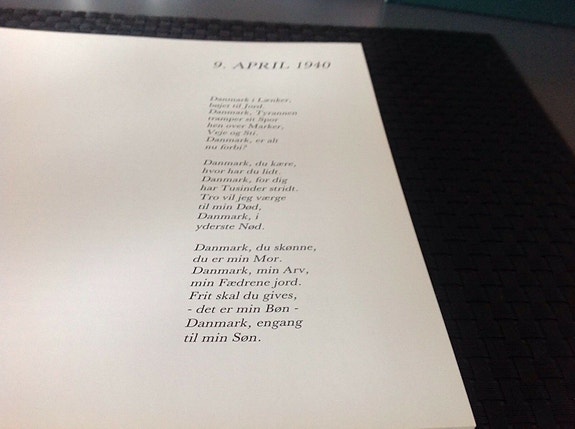 9. APRIL 1940
Danmark i Lænker,
bøjet til Jord.
Danmark, Tyrannen
tramper sit Spor
hen over Marker,
Veje og Sti.
Danmark, er alt
nu forbi?
Danmark, du kære,
hvor har du lidt.
Danmark, for dig
har Tusinder stridt.
Tro vil jeg værge
til min Død,
Danmark, i
yderste Nød.
Danmark, du skønne,
du er min Mor.
Danmark, min Arv,
min Fædrene jord.
Frit skal du gives,
- det er min Bøn -
Danmark, engang
til min Søn.